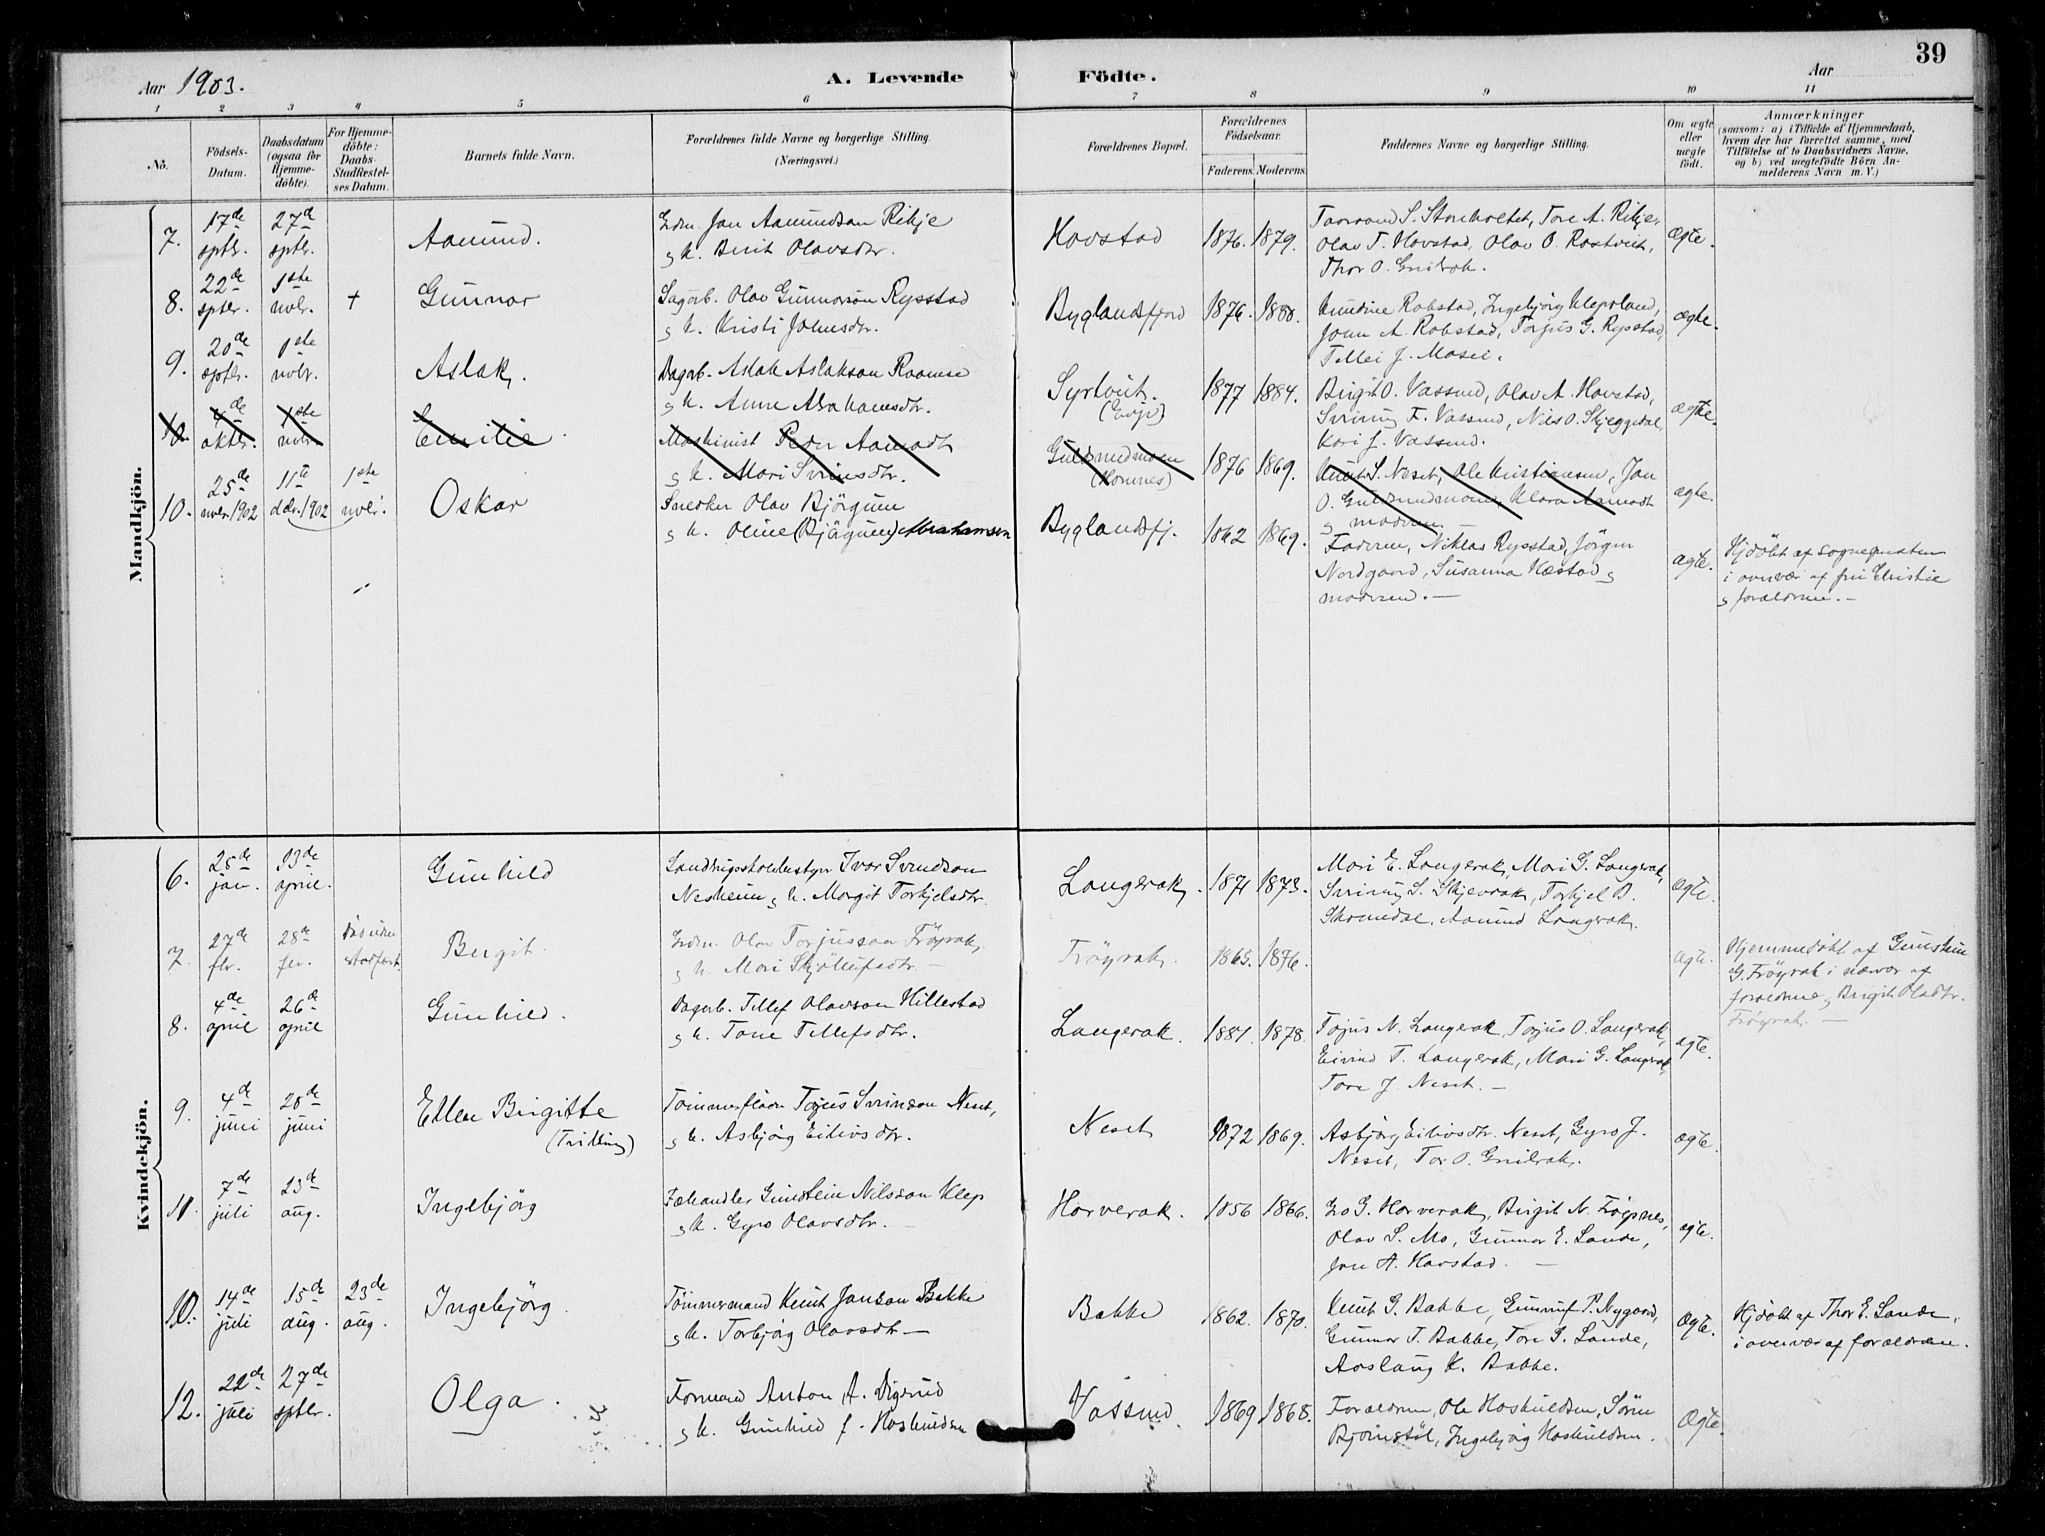 39
Aar 1903.
A. Levende Födte.
Aar
1 2 3 4 5 6 7 8 9 10 11
No.
Födsels-Datum.
Daabsdatum (ogsaa for Hjemme-döbte).
For Hjemme-döbte: Daabs-Stadfæstel-ses Datum.
Barnets fulde Navn.
Forældrenes fulde Navne og borgerlige Stilling. (Næringsvei.)
Forældrenes Bopæl.
Forældrenes Födselsaar.
Faderens. Moderens.
Faddernes Navne og borgerlige Stilling.
Om ægte eller uægte födt.
Anmærkninger (saasom: a) i Tilfælde af Hjemmedaab, hvem der har forrettet samme, med Tilföielse af to Daabsvidners Navne. og b) ved uægtefödte Börn An-melderens Navn m. V.)
Mandkjön.
7. 17de sptbr. 27de sptbr. Aamund.
Jon Aamundson Rikje
g k. Birit Olavsdtr.
Hovstad 1876. 1879.
S. Storeholtet, Tore A. Rikje,
Olav T. Hovstad, Olav O. Rostveit,
Thor O. Greibrok.
ægte.
8. 22de sptbr. 1ste nvbr. + Gunnar
Olav Gunnarson Rysstad
g k. Kristi Johnsdtr.
Byglandsfjord 1876. 1880.
Robstad, Ingebjörg Klepsland,
John A. Robstad, Torjus G. Rysstad,
Tellei J. Mosei.
ægte.
9. 20de sptbr. 1ste nvbr. Aslak.
Dagarb. Aslak Aslakson
g k. Anne Abrahamsdtr.
Syrtveit. (Evje) 1877 1884.
Birgit O. Vassend, Olav A. Hovstad,
F. Vassend, Nils O. Skjeggedal,
Kari J. Vassend.
ægte.
10. 4de oktbr. 1ste nvbr. Emilie.
Maskinist Peder Aamodt
g k. Mari Sveinsdtr.
Guldsmedmoen (Hornnes) 1876 1869.
Knut S. Neset, Ole Kristiansen, Jon
O. Guldsmedmoen, Klara Aamodt
g moderen. —
ægte.
10. 25de nvbr. 1902 11te dcbr. 1902 1ste nvbr. Oskar
Snedker Olav Björgum
g k. Oline (Björgum) Abrahamsen
Byglandsfj. 1862 1869.
Faderen, Niklas Rysstad, Jörgen
Nordgaard, Susanna Hæstad g
moderen. —
ægte.
Hjdöbt af sognepresten
i overvær af fru Christie
g forældrene. —
Kvindekjön.
6. 25de jan. 13de april. Gunhild
Ivar Svendson
Nesheim g k. Margit Torkjelsdtr.
Langerak. 1871 1873.
Mari E. Langerak, Mari G. Langerak,
S. Skjevrak, Torkjel B.
Skomedal, Aanund Langerak.
ægte.
7. 27de fbr. 28de fbr. Död uden stadfæst. Birgit.
Olav Torjusson Fröyrak,
g k. Mari Skjöllufsdtr. —
Fröyrak. 1865. 1876.
ægte.
Hjemmedöbt af Gunstein
G. Fröyrak i nærvær af
forældrene g Birgit Olavsdtr.
Fröyrak. —
8. 4de april 26de april Gunhild.
Dagarb. Tellef Olavson Hillestad
g k. Tone Tellefsdtr.
Langerak. 1881. 1878.
Torjus N. Langerak, Torjus O. Langerak,
Eivind T. Langerak, Mari G. Langerak,
Tore J. Neset. —
ægte.
9. 4de juni 28de juni Ellen Birgitte (Tvilling)
Tömmerflöder Torjus Sveinson Neset,
g k. Asbjörg Eilivsdtr.
Neset 1872 1869.
Asbjörg Eilivsdtr. Neset, Gyro J.
Neset, Tor O. Greibrok.
ægte.
11. 7de juli 23de aug. Ingebjörg
Fæhandler Gunstein Nilsson Klep
g k. Gyro Olavsdtr. —
Horverak. 1856 1866.
G. Horverak, Birgit N. Fröysnes,
Olav S. Mo, Gunnar E. Lande,
Jon A. Hovstad. —
ægte.
10. 14de juli 15de aug. 23de aug. Ingebjörg.
Tömmermand Knut Jonson Bakke
g k. Torbjörg Olavsdtr —
Bakke 1862. 1870.
Knut G. Bakke, P. Nygaard,
Gunnar T. Bakke, Tore S. Lande,
Aaslaug K. Bakke.
Ægte.
Hjdöbt af Thor E. Lande,
i overvær af forældrene.
12. 22de juli 27de sptbr. Olga.
Formand Anton A. Digerud
g k. Gunhild f. Hoskuldsen
Vassend. 1869 1868.
Forældrene, Ole Hoskuldsen, Sören
Björnstöl, Ingebjörg Hoskuldsen.
Ægte.